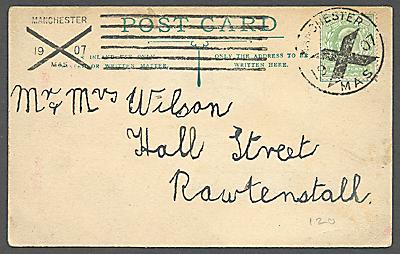 MANCHESTER
19 07
MAS
POST CARD
INLAND USE ONLY
OR WRITTEN MATTER.
ONLY THE ADDRESS TO BE
WRITTEN HERE.
MANCHESTER
19 07
MAS
Mr & Mrs Wilson
Hall Street
Rawtenstall.
120